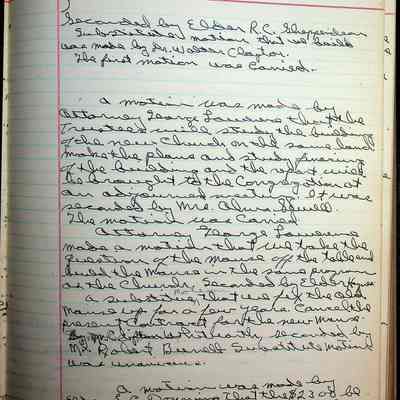 Seconded by Elder R.C. Shepperdson
Substitute motion that we build
was made by Dr. Walter Claytor.
The first motion was Carried.
a motion was made by
Attorney George Lawrence that the
Trustees will study the building
of the new Church on the same land
make the plans and study financing
of the building and the report will
be brought to the Congregation at
an adjourned meeting. It was
seconded by Mrs. Allen Sewell.
The motion was Carried
Attorney George Lawrence
made a motion that we take the
question of the Manse off the table and
build the Manse in the same program
as the Church, Seconded by Elder
a substitute, that we fix the old
Manse up for a few years. Cancel the
present Contract for the new Manse.
seconded by
Mr. Robert Burrell Substitute Motion
was
a motion was made by
that the $23.00 be